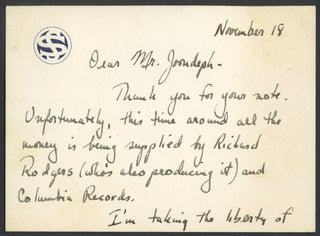 November 18
Dear Mr. Joondeph-
Thank you for your note.
Unfortunately, this time around all the
money is being supplied by Richard
Rodgers (who's also producing it) and
Columbia Records.
I'm taking the liberty of